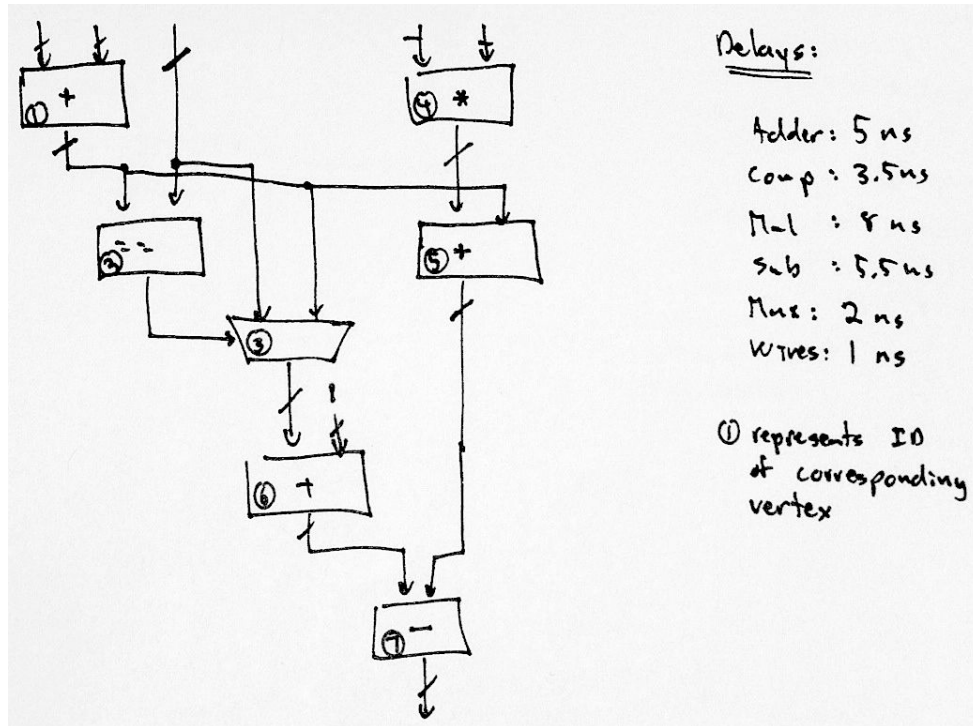 ① +
④ *
② ==
⑤ +
③
1
⑥ +
⑦ -
Delays:
Adder: 5 ns
Comp: 3.5ns
Mul : 8 ns
Sub : 5.5ns
Mux: 2 ns
Wires: 1 ns
① represents ID
of corresponding
vertex